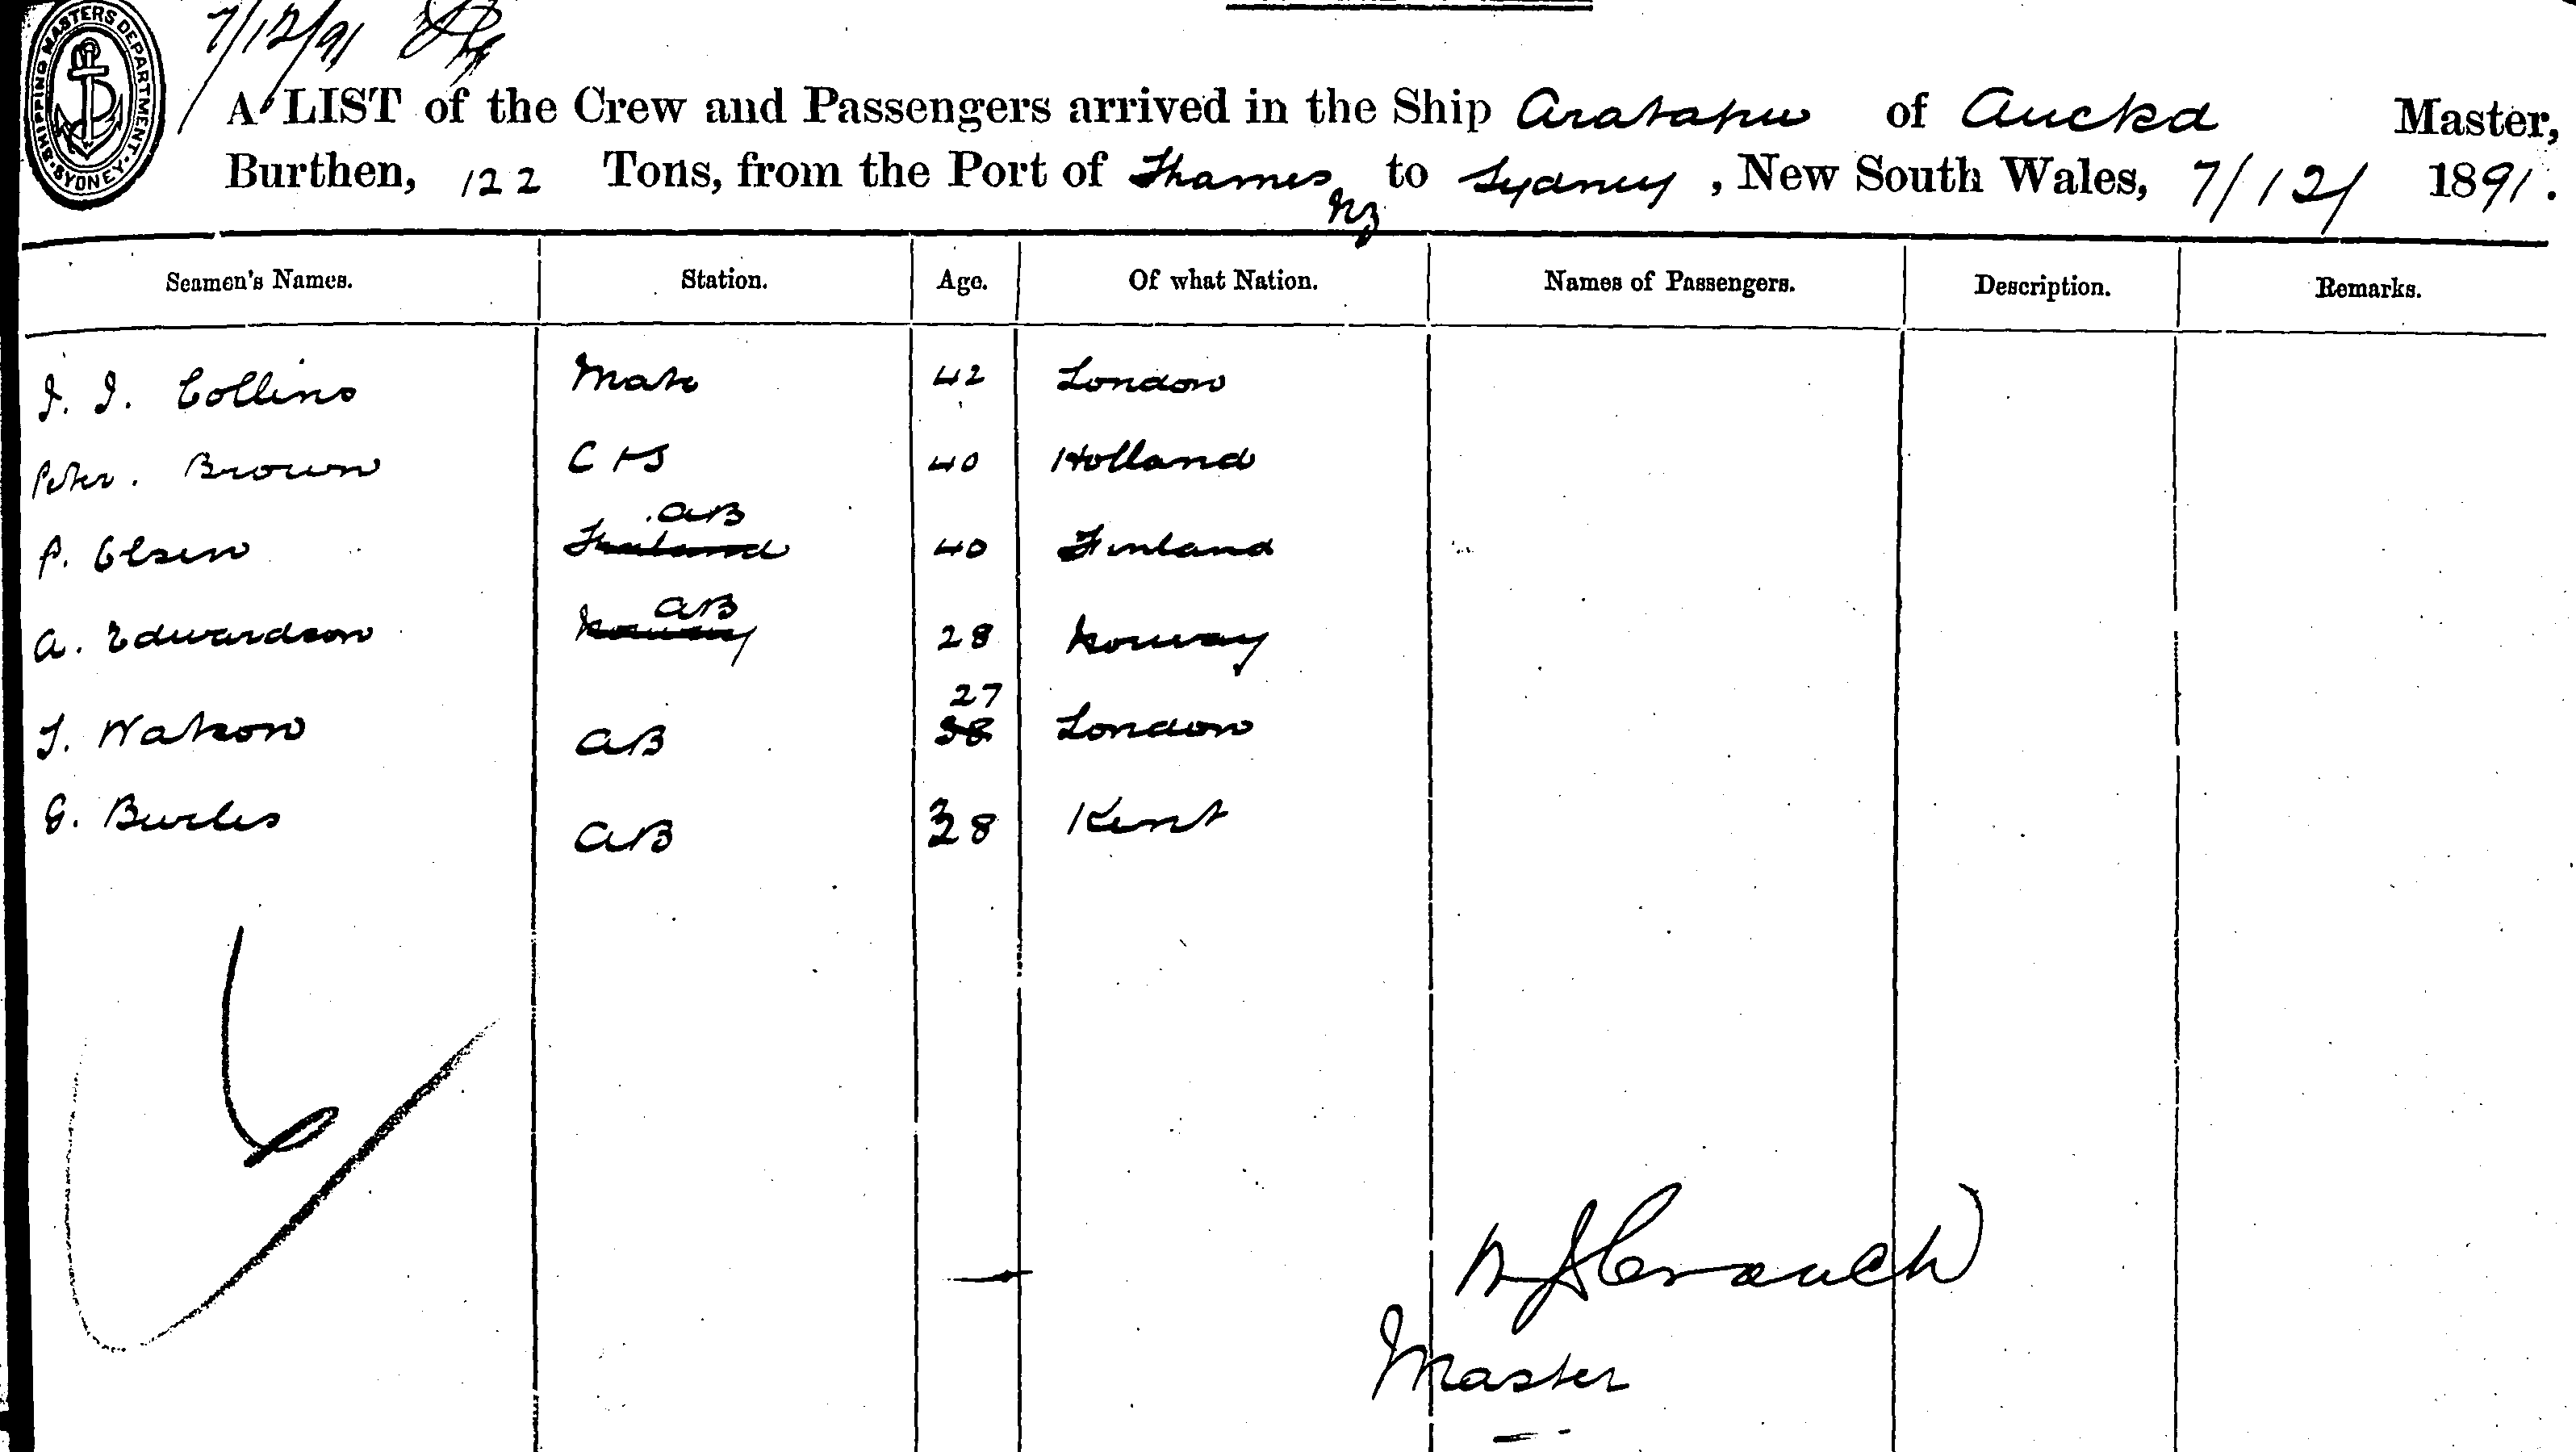 SHIPPING MASTERS DEPARTMENT. SYDNEY.
7/12/91
A LIST of the Crew and Passengers arrived in the Ship Aratapu of Auckd Master,
Burthen, 122 Tons, from the Port of Thames NZ to Sydney, New South Wales, 7/12/ 1891.
Seamen's Names. Station. Age. Of what Nation. Names of Passengers. Description. Remarks.
J. J. Collins Mate 42 London
Peter. Brown C & S 40 Holland
AB
P. Olsen Finland 40 Finland
AB
A. Edwardson Norway 28 Norway
27
J. Watson AB 38 London
G. Burles AB 28 Kent
6
Crouch
Master